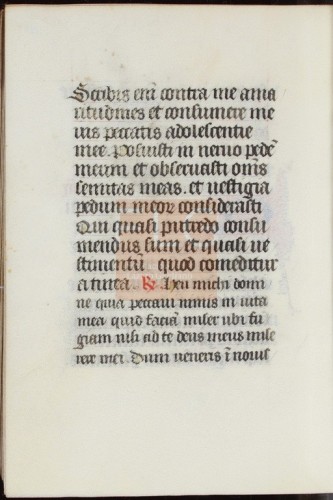 Scribis eni contra me ama
ritudines et consumere me
vis peccatis adolescentie
mee. Posuisti in neruo pedē
meum et obseruasti oms̄
semitas meas. et uestigia
pedum meor̄ considerasti
Qui quasi putredo consu
mendus sum et quasi ue
stimentū quod comeditur
a tinea. R Heu michi domi
ne quia peccaui nimis in uita
mea quid faciā miser ubi fu
giam nisi ad te deus meus mise
rere mei. Dum ueneris ī nouis